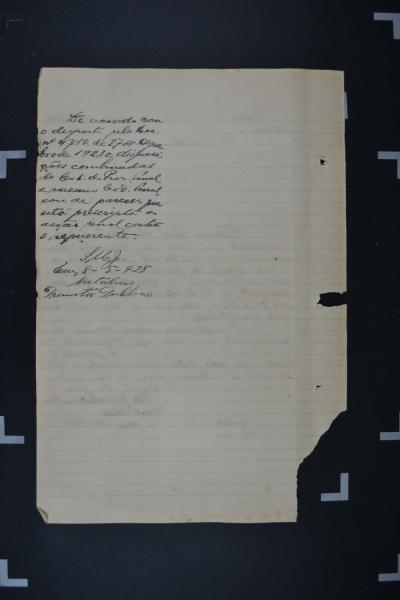 De accordo com
o disposto pelo Dec.
nº 4780, de 27 de Dezem
bro de 1923 e disposi
ções combinadas
do Cod. de Proc. Penal
e mesmo Cod. Penal
sou de parecer que
está prescripta a
acção penal contra
o requerente.
Em, 8-5-928
Promotor Publico